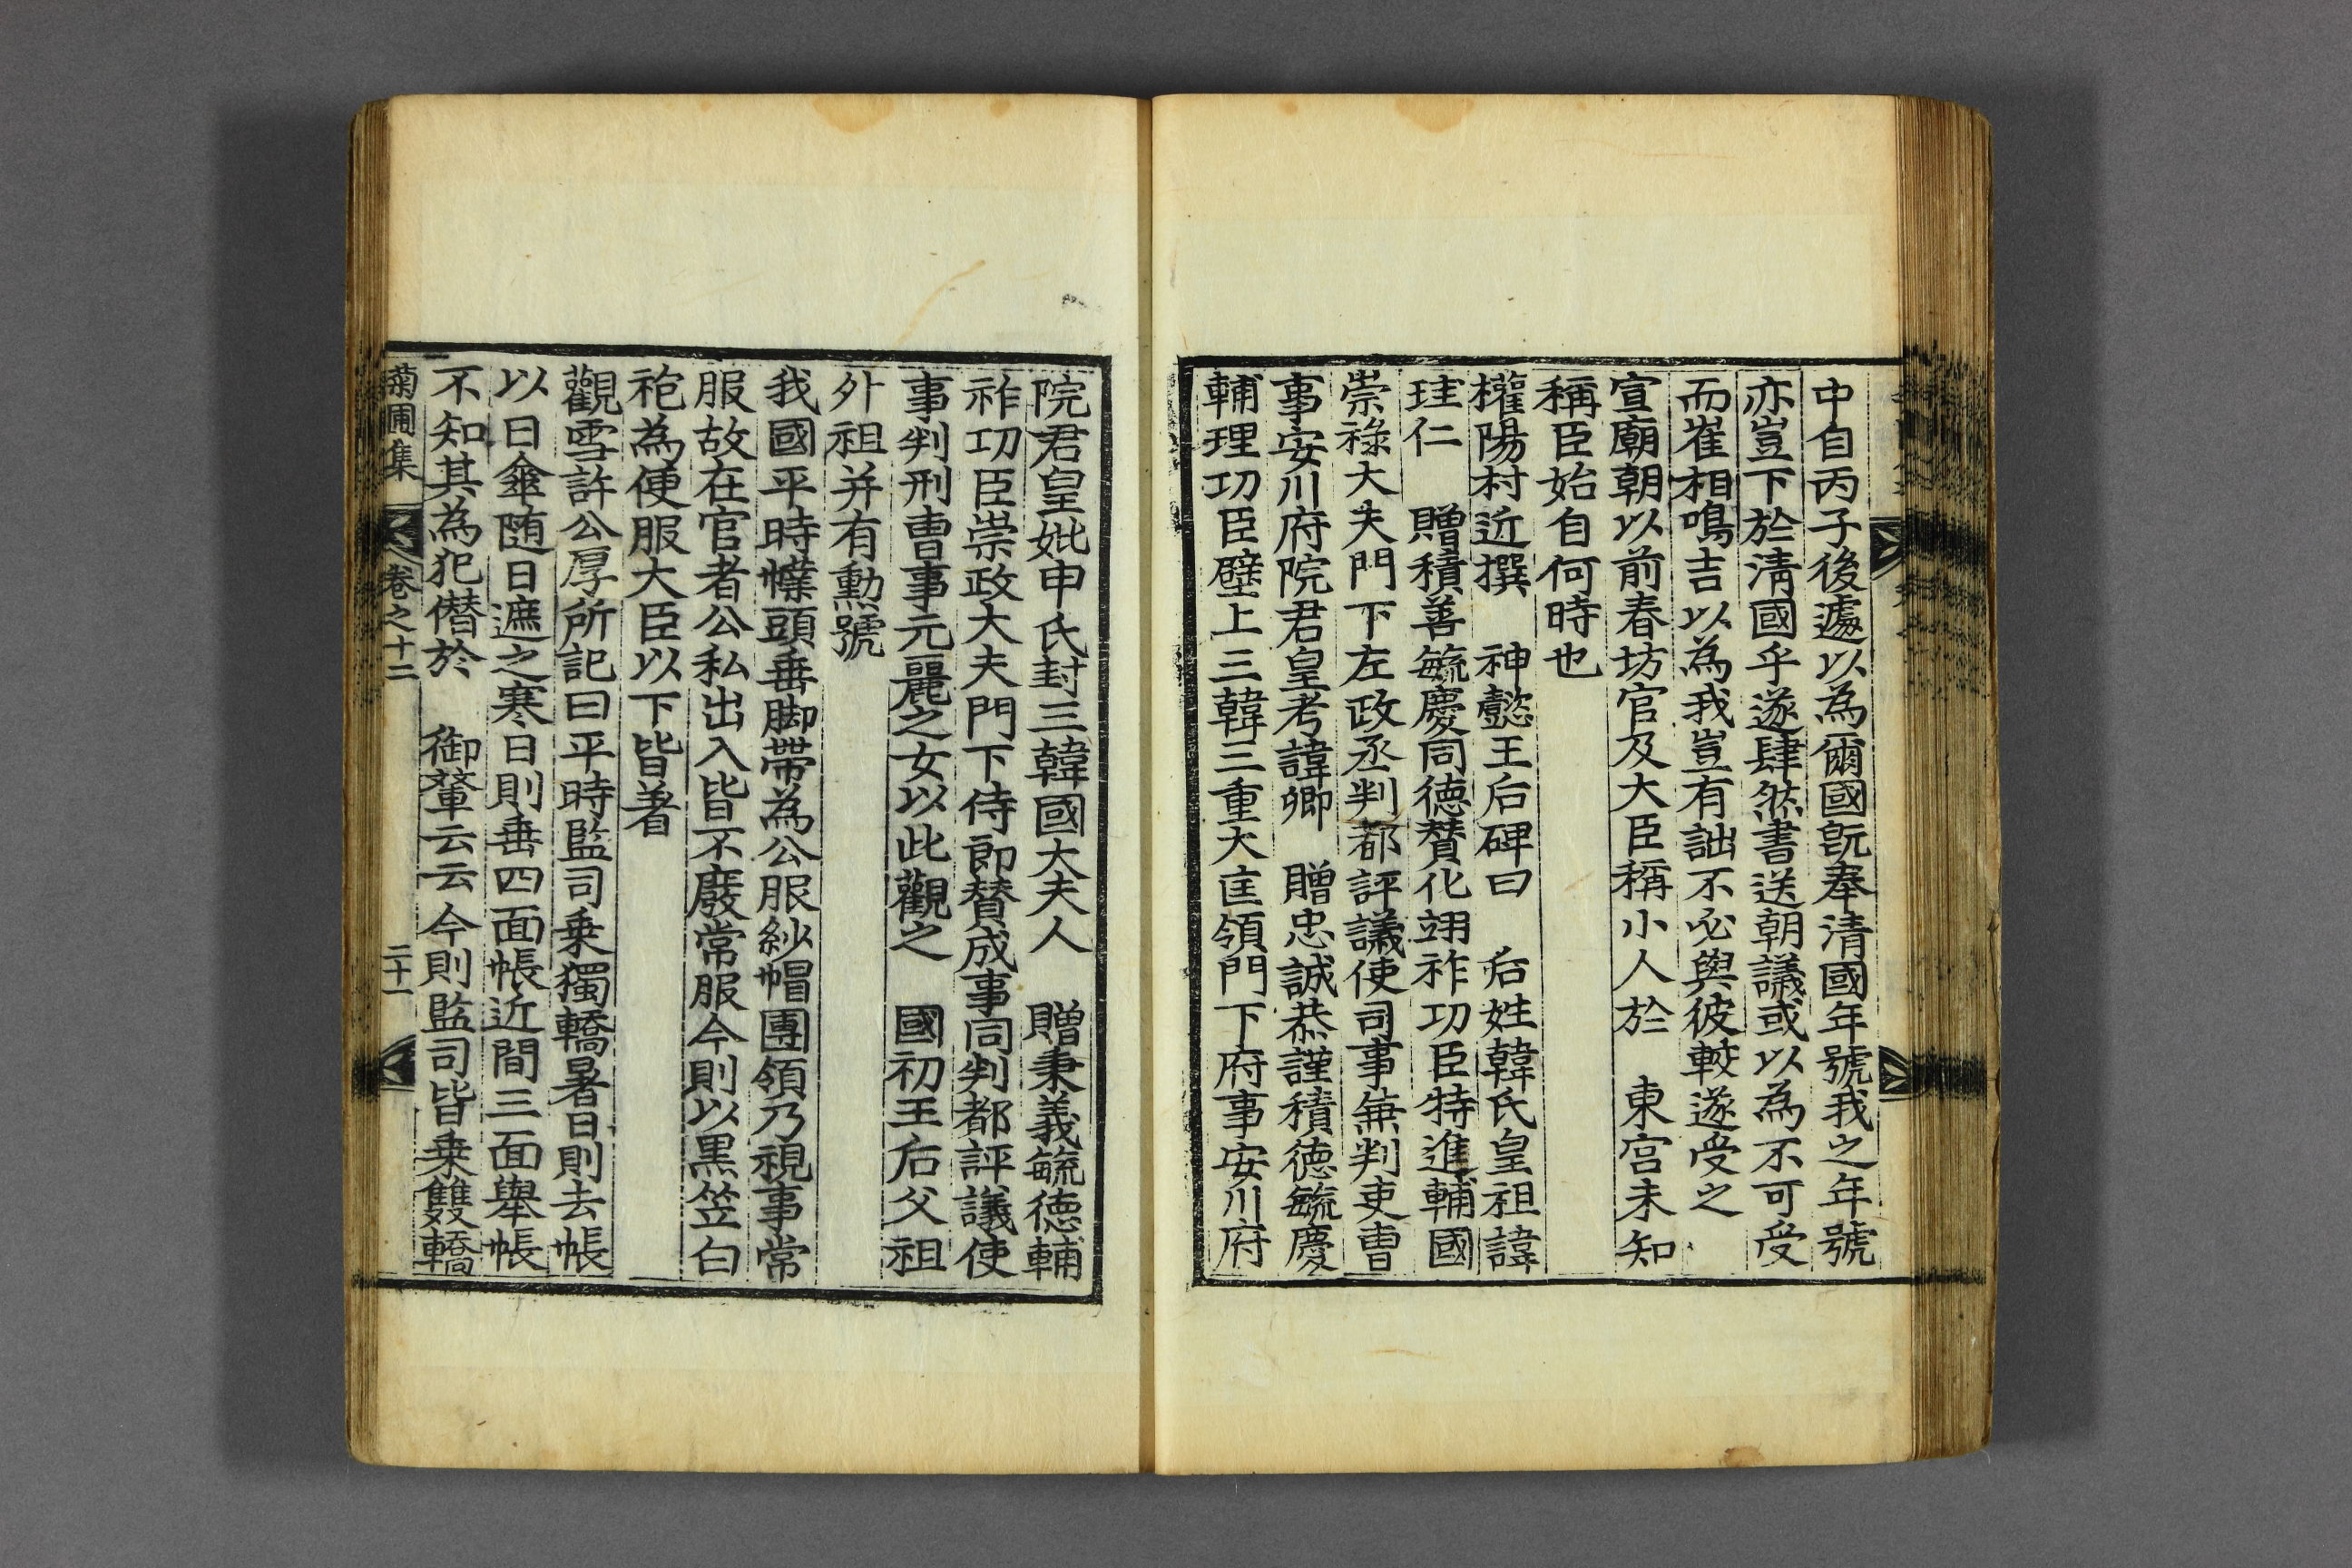 中自丙子後遽以為爾國旣奉清國年號我之年號
亦豈下於淸國乎遂肆然書送朝議或以為不可受
而崔相鳴吉以為我豈有詘不必與彼較遂受之
宣廟朝以前春坊官及大臣稱小人於　東宮未知
稱臣始自何時也
權陽村近撰　神懿王后碑曰　后姓韓氏皇祖諱
珪仁　贈積善毓慶同德贊化翊祚功臣特進輔國
崇祿大夫門下左政丞判都評議使司事兼判吏曹
事安川府院君皇考諱卿　贈忠誠恭謹積德毓慶
輔理功臣壁上三韓三重大匡領門下府事安川府
院君皇妣申氏封三韓國大夫人　贈秉義毓德輔
祚功臣崇政大夫門下侍郞賛成事同判都評議使
事判刑曹事元麗之女以此觀之　國初王后父祖
外祖并有勳號
我國平時幞頭垂脚帶為公服紗帽團領乃視事常
服故在官者公私出入皆不廢常服今則以黑笠白
袍為便服大臣以下皆著
觀雪許公厚所記曰平時監司乗獨轎暑日則去帳
以日傘随日遮之寒日則垂四面帳近間三面舉帳
不知其為犯僭於　御輦云云今則監司皆乗雙轎
菊圃集　卷之十二　二十一